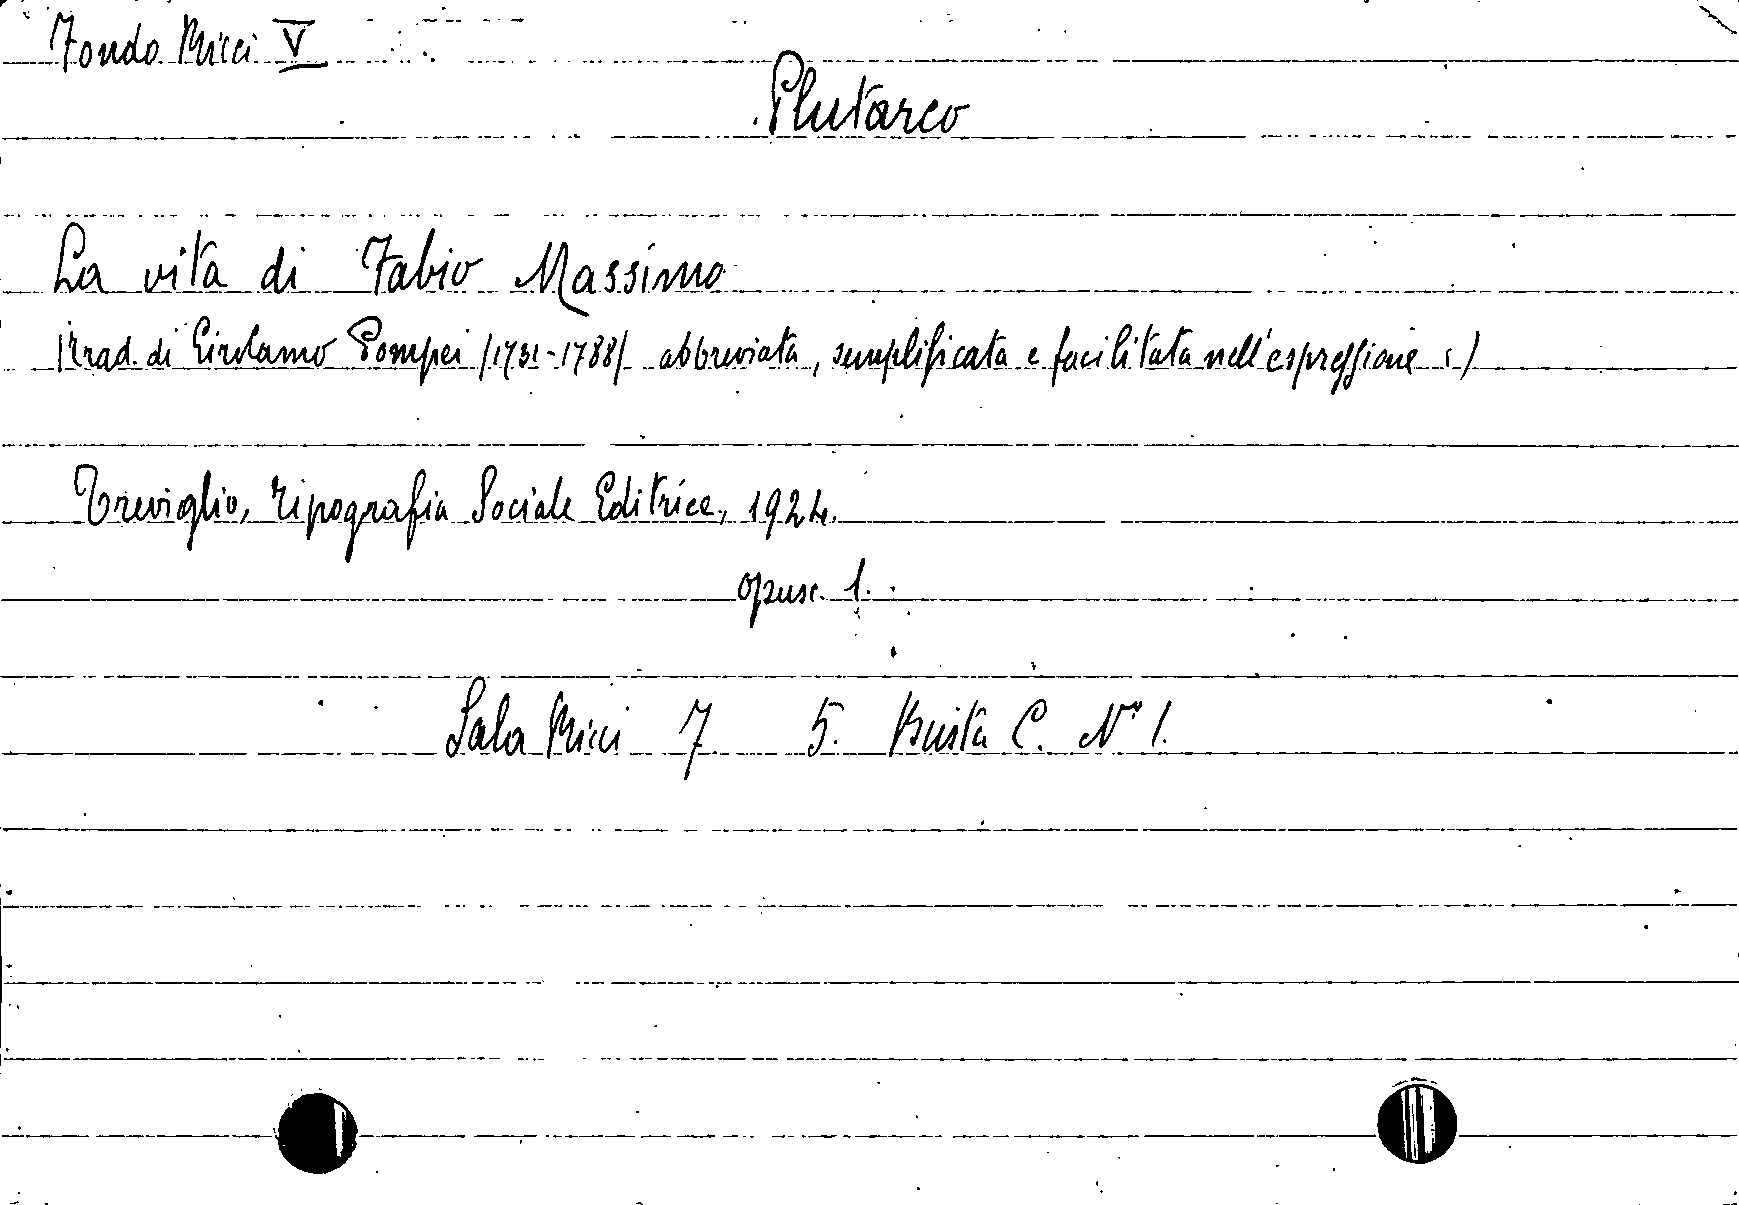 Fondo Ricci V
Plutarco
La vita di Fabio Massimo
(Trad. di Girolamo Pompei (1731-1788) abbreviata, semplificata e facilitata nell'espressione :)
Treviglio, Tipografia Sociale Editrice, 1924.
opusc. 1.
Sala Ricci 7 5. Busta C. N° 1.